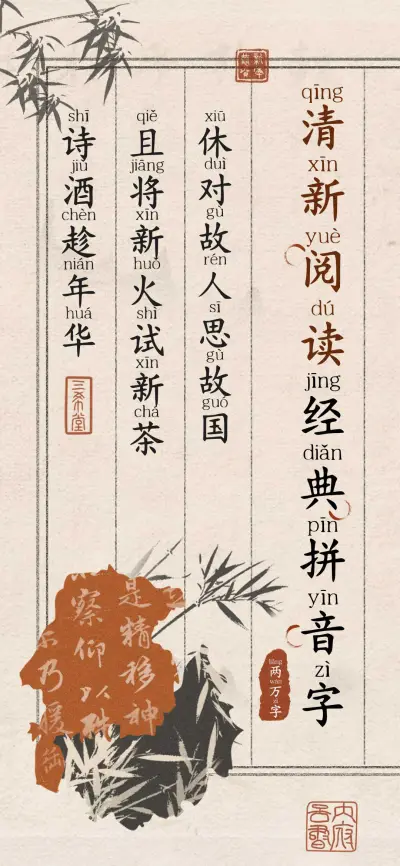 qīng 清 xīn 新 yuè 阅 dú 读 jīng 经 diǎn 典 pīn 拼 yīn 音 zì 字
liǎng 两 wàn 万 zì 字
xiū 休 duì 对 gù 故 rén 人 sī 思 gù 故 guó 国
qiě 且 jiāng 将 xīn 新 huǒ 火 shì 试 xīn 新 chá 茶
shī 诗 jiǔ 酒 chèn 趁 nián 年 huá 华
三希堂
是精移神
察仰以殊